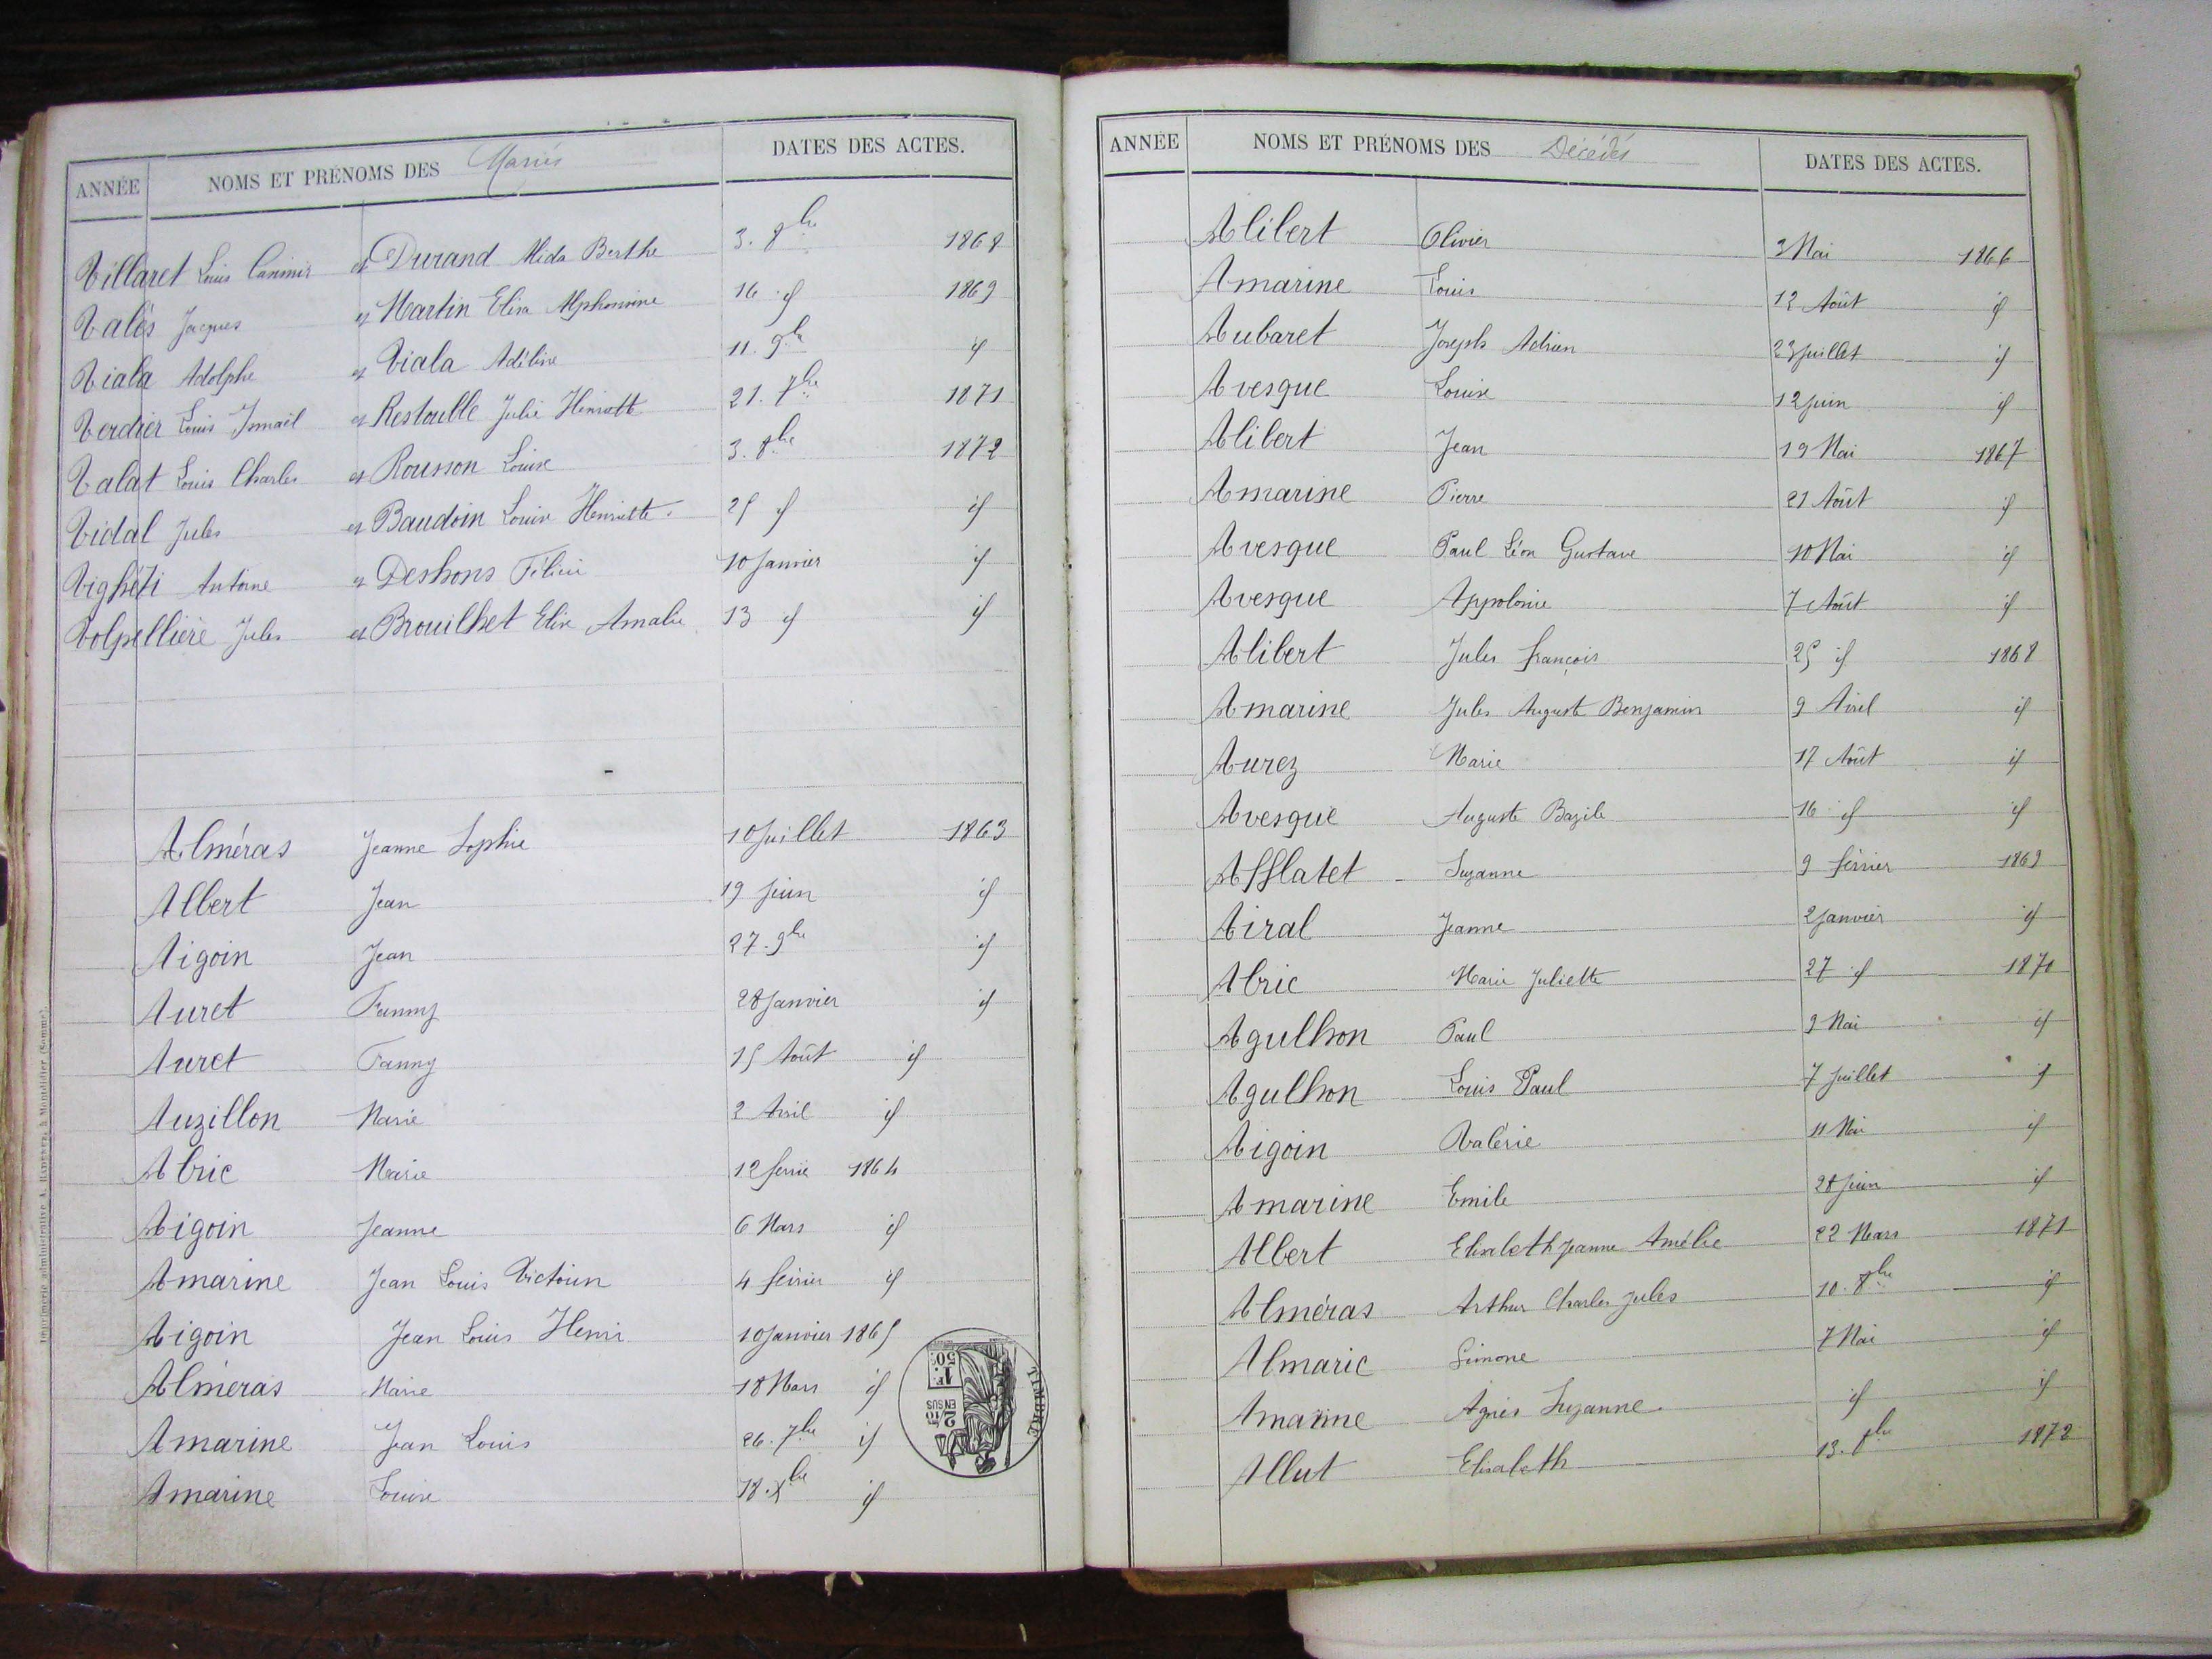 ANNÉE NOMS ET PRÉNOMS DES Mariés DATES DES ACTES.
Villaret Louis Casimir et Durand Alida Berthe 3. 8bre 1868
Valès Jacques et Martin Elisa Alphonsine 16 id 1869
Viala Adolphe et Viala Adéline 11. 9bre id
Verdier Louis Ismaël et Restouble Julie Henriette 21. 7bre 1871
Valat Louis Charles et Rousson Louise 3. 8bre 1872
Vidal Jules et Baudoin Louise Henriette. 25 id id
Vighéti Antoine et Deshons Félicie 10 Janvier id
Volpellière Jules et Brouilhet Elise Amalie 13 id id
Alméras Jeanne Sophie 10 Juillet 1863
Albert Jean 19 Juin id
Aigoin Jean 27. 9bre id
Auret Fanny 28 Janvier id
Auret Fanny 15 Août id
Auzillon Marie 2 Avril id
Abric Marie 12 fevrie 1864
Aigoin Jeanne 6 Mars id
Amarine Jean Louis Victorin 4 février id
Aigoin Jean Louis Henri 10 Janvier 1865
Alméras Marie 18 Mars id
Amarine Jean Louis 26. 7bre id
Amarine Louise 18. Xbre id
TIMBRE
1F. 50c.
2/10 EN SUS
Imprimerie administrative A. à Montdidier (Somme).
ANNÉE NOMS ET PRÉNOMS DES Décédés DATES DES ACTES.
Alibert Olivier 3 Mai 1866
Amarine Louis 12 Août id
Aubaret Joseph Adrien 23 Juillet id
Avesque Louise 12 Juin id
Alibert Jean 19 Mai 1867
Amarine Pierre 21 Août id
Avesque Paul Léon Gustave 10 Mai id
Avesque Appolonie 7 Août id
Alibert Jules françois 25 id 1868
Amarine Jules Auguste Benjamin 9 Avril id
Aurez Marie 17 Août id
Avesque Auguste Bazile 16 id id
Afflatet Suzanne 9 février 1869
Airal Jeanne 2 Janvier id
Abric Marie Juliette 27 id 1870
Agulhon Paul 9 Mai id
Agulhon Louis Paul 7 Juillet id
Aigoin Valérie 11 Mai id
Amarine Emile 28 Juin id
Albert Elisabeth Jeanne Amélie 22 Mars 1871
Alméras Arthur Charles Jules 10. 8bre id
Almaric Simone 7 Mai id
Amarine Agnès Suzanne. id id
Allut Elisabeth 13. 8bre 1872